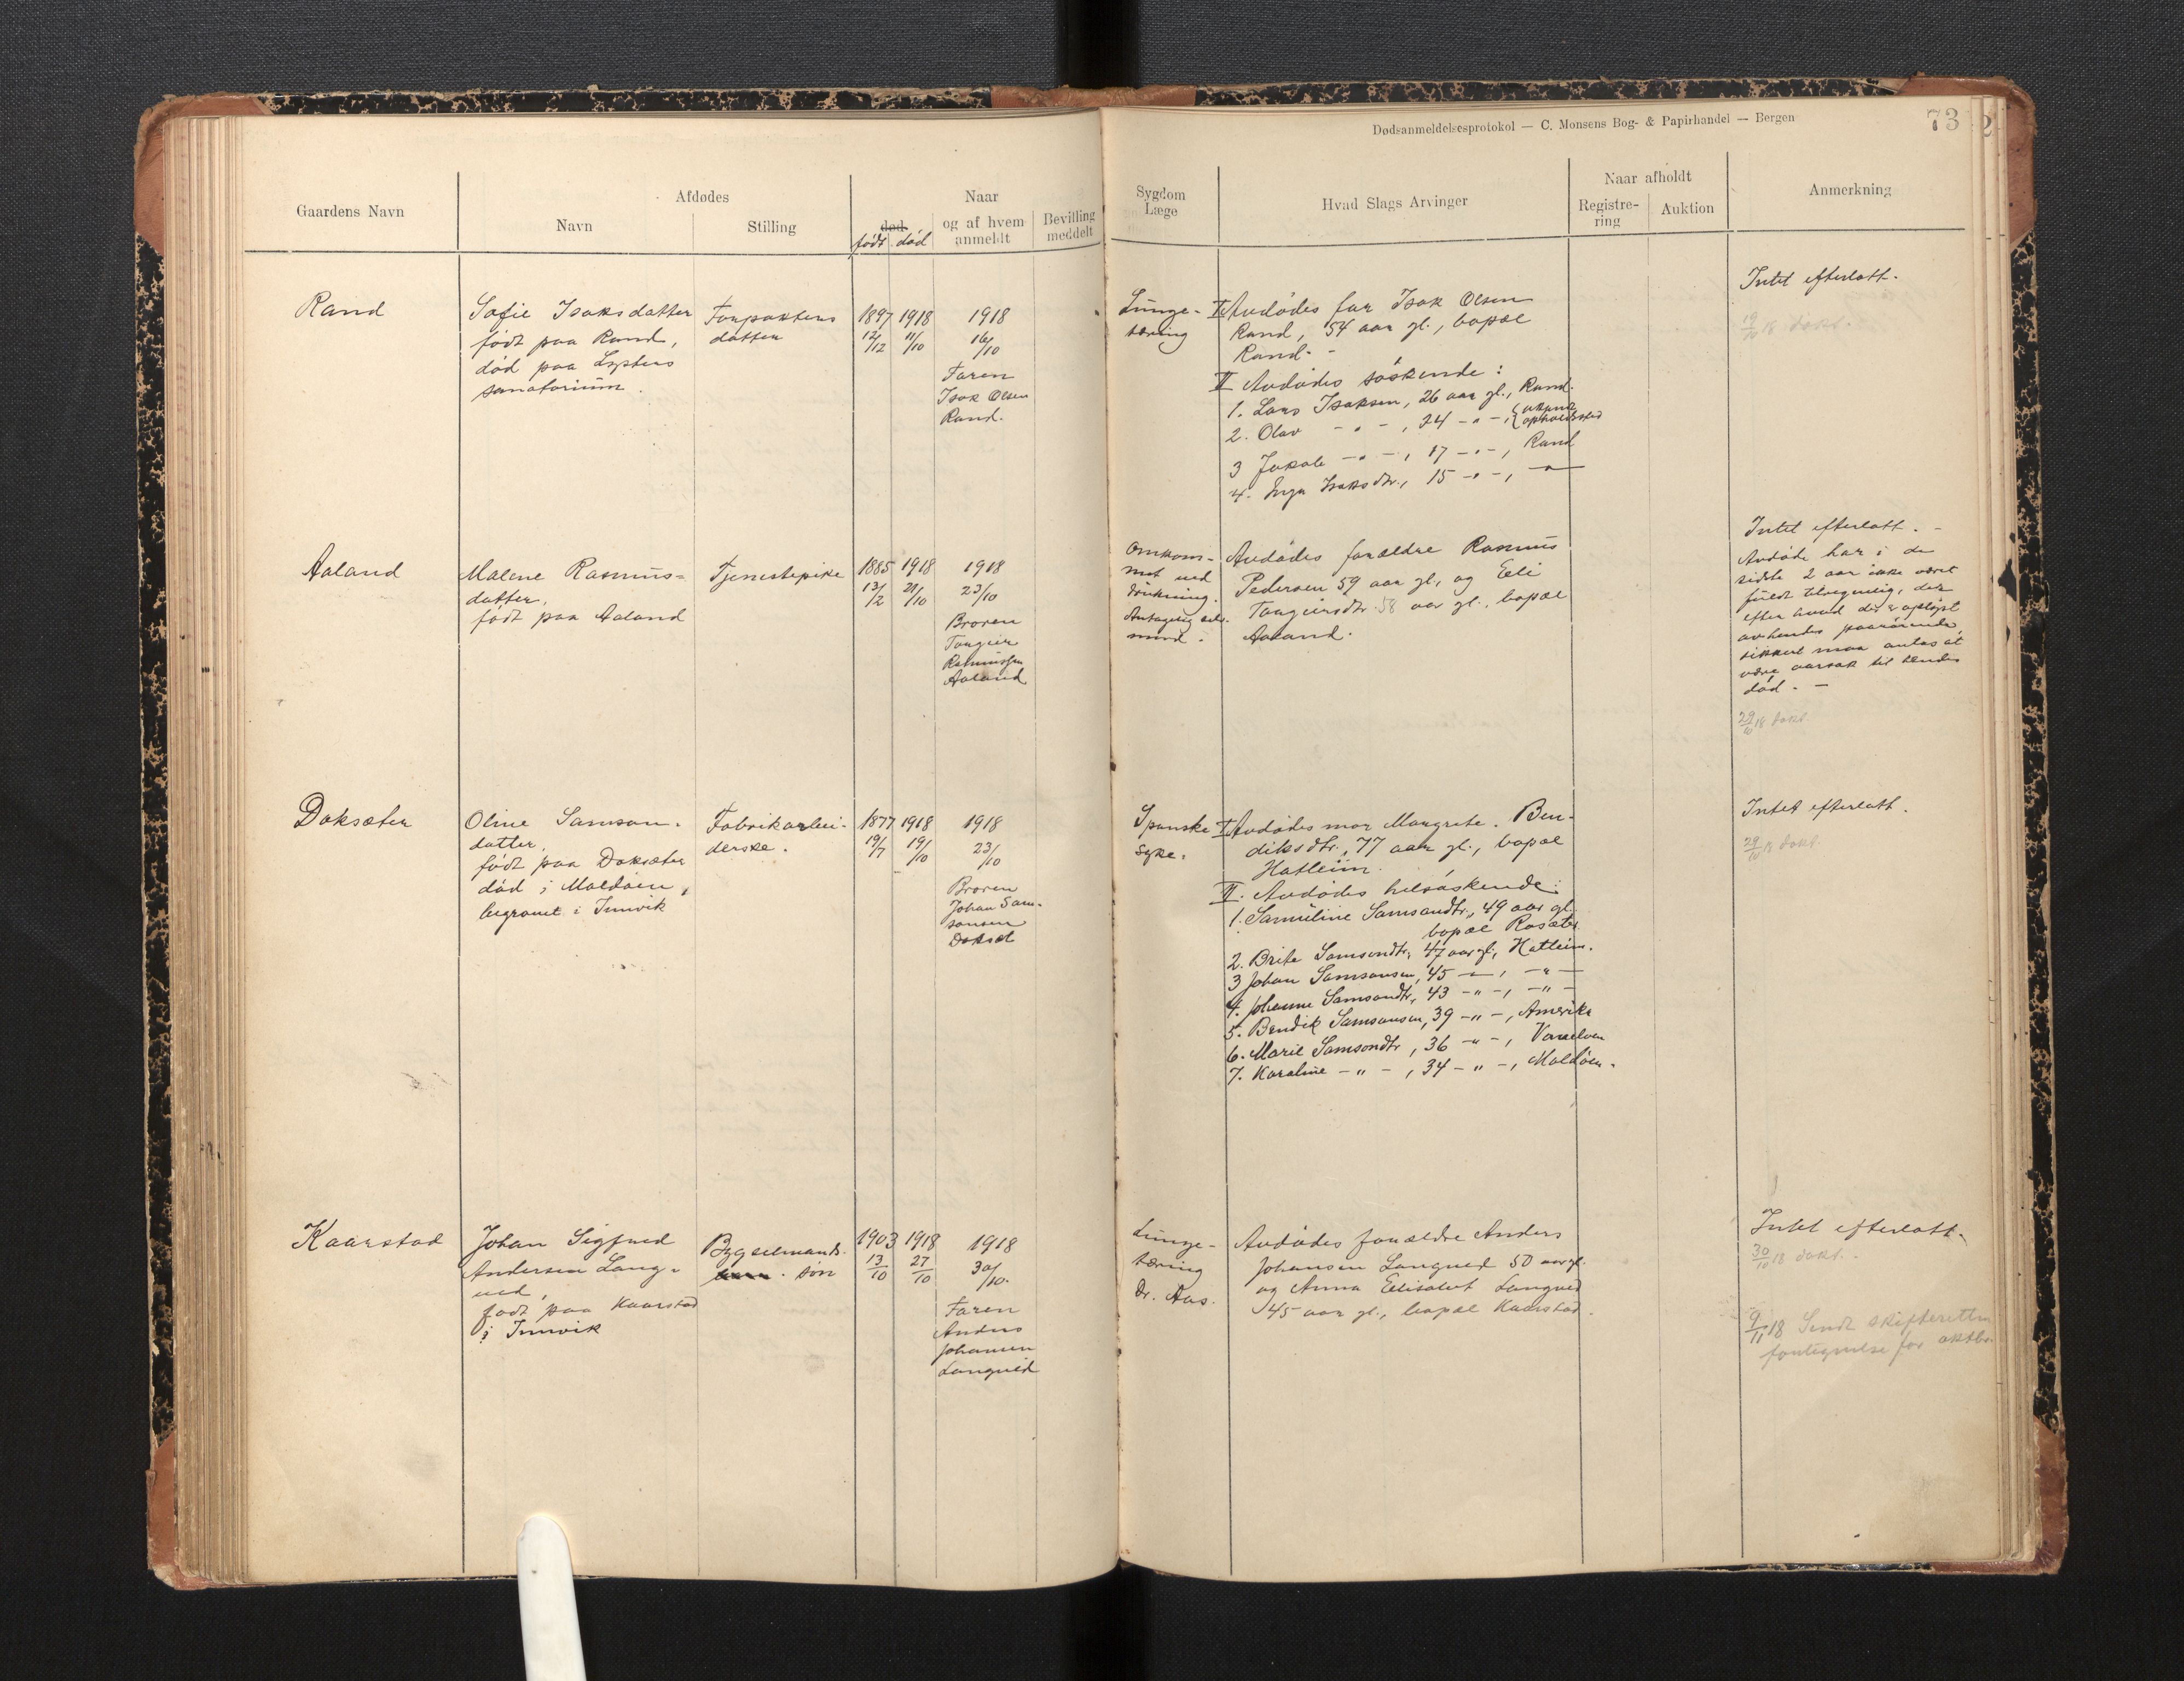 Dødsanmeldelsesprotokol — C. Monsens Bog- & Papirhandel — Bergen
73
2
Gaardens Navn
Afdødes
Navn
Stilling
Naar
død
født død
og af hvem
anmeldt
Bevilling
meddelt
Sygdom
Læge
Hvad Slags Arvinger
Naar afholdt
Registre-
ring
Auktion
Anmerkning
Rand
Sofie Isaksdatter
født paa Rand,
død paa Lyster
sanatorium.
Forpakters
datter
1897
12/12
1918
11/10
1918
16/10
Faren
Isak Olsen
Rand.
Lunge-
tæring
I Avdødes far Isak Olsen
Rand, 54 aar gl., bopæl
Rand. -
II Avdødes søskende:
1. Lars Isaksen, 26 aar gl., Rand.
2. Olav - " - , 24 - " -, {ukjendt
opholdssted
3 Jakob - " - , 17 - " -, Rand
4. Inga Isaksdtr., 15 - " -, - " -
Intet efterlatt.
19/10 18 dokt.
Aaland
Malene Rasmus=
datter,
født paa Aaland
Tjenestepike
1885
13/2
1918
21/10
1918
23/10
Broren
Tongeir
Rasmussen
Aaland
Omkom-
met ved
drukning.
Antagelig selv-
mord.
Avdødes forældre Rasmus
Pedersen 59 aar gl., og Eli
Tongeirsdtr. 58 aar gl., bopæl
Aaland.
Intet efterlatt. -
Avdøde har i de
sidste 2 aar ikke været
fuldt tilregnelig, der
efter hvad der er oplyst
av hendes paarørende,
sikkert maa antas at
være aarsak til hendes
død. -
29/10 18 dokt.
Doksæter
Oline Samson-
datter,
født paa Doksæter
død i Maldøen,
begravet i Innvik
Fabrikarbei-
derske.
1877
19/7
1918
19/10
1918
23/10
Broren
Johan Sam-
sonsen
Doksæt
Spanske
syke.
I Avdødes mor Margrete Ben-
diksdtr., 77 aar gl., bopæl
Hatleim.
II. Avdødes helsøskende:
1. Samuline Samsondtr., 49 aar gl.
bopæl Rosæter
2. Brite Samsondtr., 47 aar gl., Hatleim.
3 Johan Samsonsen, 45 - " - , - " -
4. Johanne Samsondtr., 43 - " -, - " -
5. Bendik Samsonsen, 39 - " -, Amerika
6. Marie Samsondtr., 36 - " -, Vanelven
7. Karoline - " - , 34 - " -, Maldøen.
Intet efterlatt.
29/10 18 dokt.
Kaarstad
Johan Sigfred
Andersen Lang-
ved,
født paa Kaarstad
i Innvik
Bygselmands-
søn
1903
13/10
1918
27/10
1918
30/10.
Faren
Anders
Johansen
Langved
Lunge-
tæring
Dr. Aas.
Avdødes forældre Anders
Johansen Langved 50 aar gl.
og Anna Elisabet Langved
45 aar gl., bopæl Kaarstad.
Intet efterlatt.
30/10 18 dokt.
9/11 18 Sendt skifteretten
fortegnelse for oktbr.